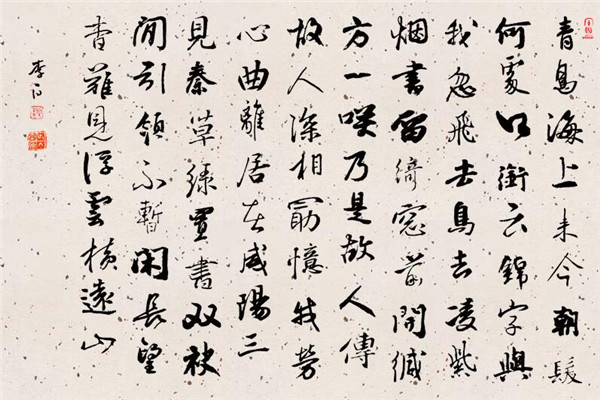 青鳥海上来今朝髮
何處口銜云錦字與
我忽飛去鳥去凌紫
烟書留綺窓前開緘
方一咲乃是故人傳
故人深相勖憶我勞
心曲離居在咸陽三
見秦草綠置書双袂
間引領不暫閑長望
杳難見浮雲橫遠山
李白